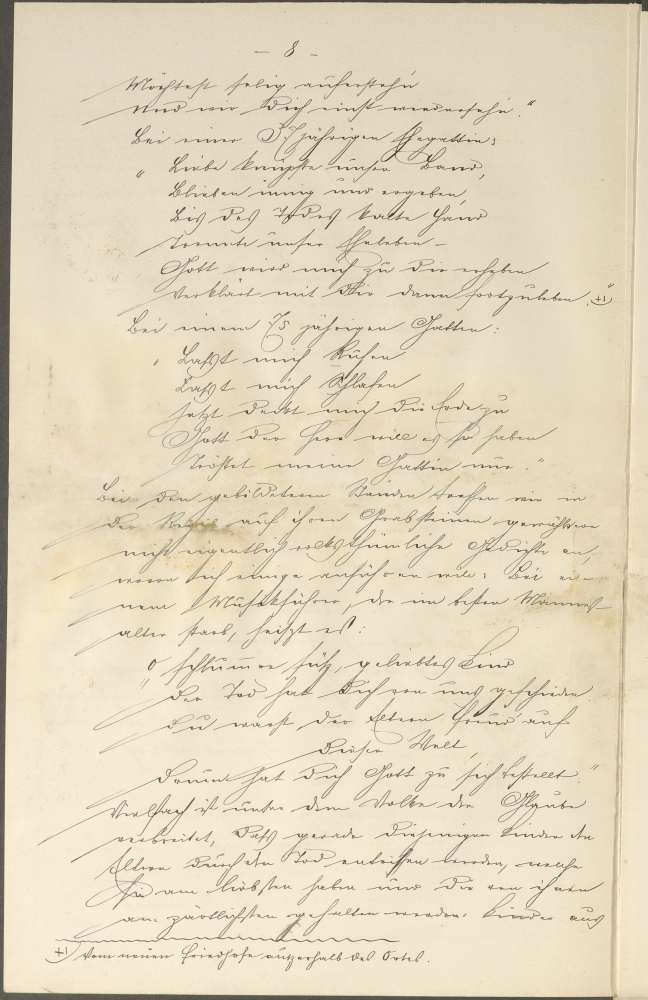 - 8 -
Möchtest selig auferstehn
Und wir Dich einst wiedersehn."
Bei einer 57jährigen Ehegattin:
" Liebe knüpfte unser Band,
Blieben innig und ergeben,
Bis des Todes kalte Hand
Trennte unser Eheleben -
Gott wird mich zu Dir erheben
Verklärt mit Dir dann fortzuleben." +)
Bei einem 75 jährigen Gatten:
" Lasst mich Ruhen
Lasst mich Schlafen
Jetzt deckt mich die Erde zu
Gott der Herr will es so haben
Tröstet meine Gattin nur."
Bei den gebildeteren Ständen treffen wir in
der Regel auf ihren Grabsteinen gewähltere
nicht eigentlich volksthümliche Gedichte an,
wovon ich einige anführen will: Bei ei-
nem Musikführer, der im besten Mannes-
alter starb, heiszt es:
" O schlummre süsz, geliebtes Kind
Der Tod hat Dich von uns geschieden
Du warst der Eltern Freud auf
dieser Welt,
Drum hat Dich Gott zu sich bestellt."
Vielfach ist unter dem Volke der Glaube
verbreitet, dass gerade diejenigen Kinder den
Eltern durch den Tod entrissen werden, welche
sie am liebsten haben und die von ihnen
am zärtlichsten gehalten werden. Kinder aus
+) Vom neuen Friedhofe auszerhalb des Ortes.